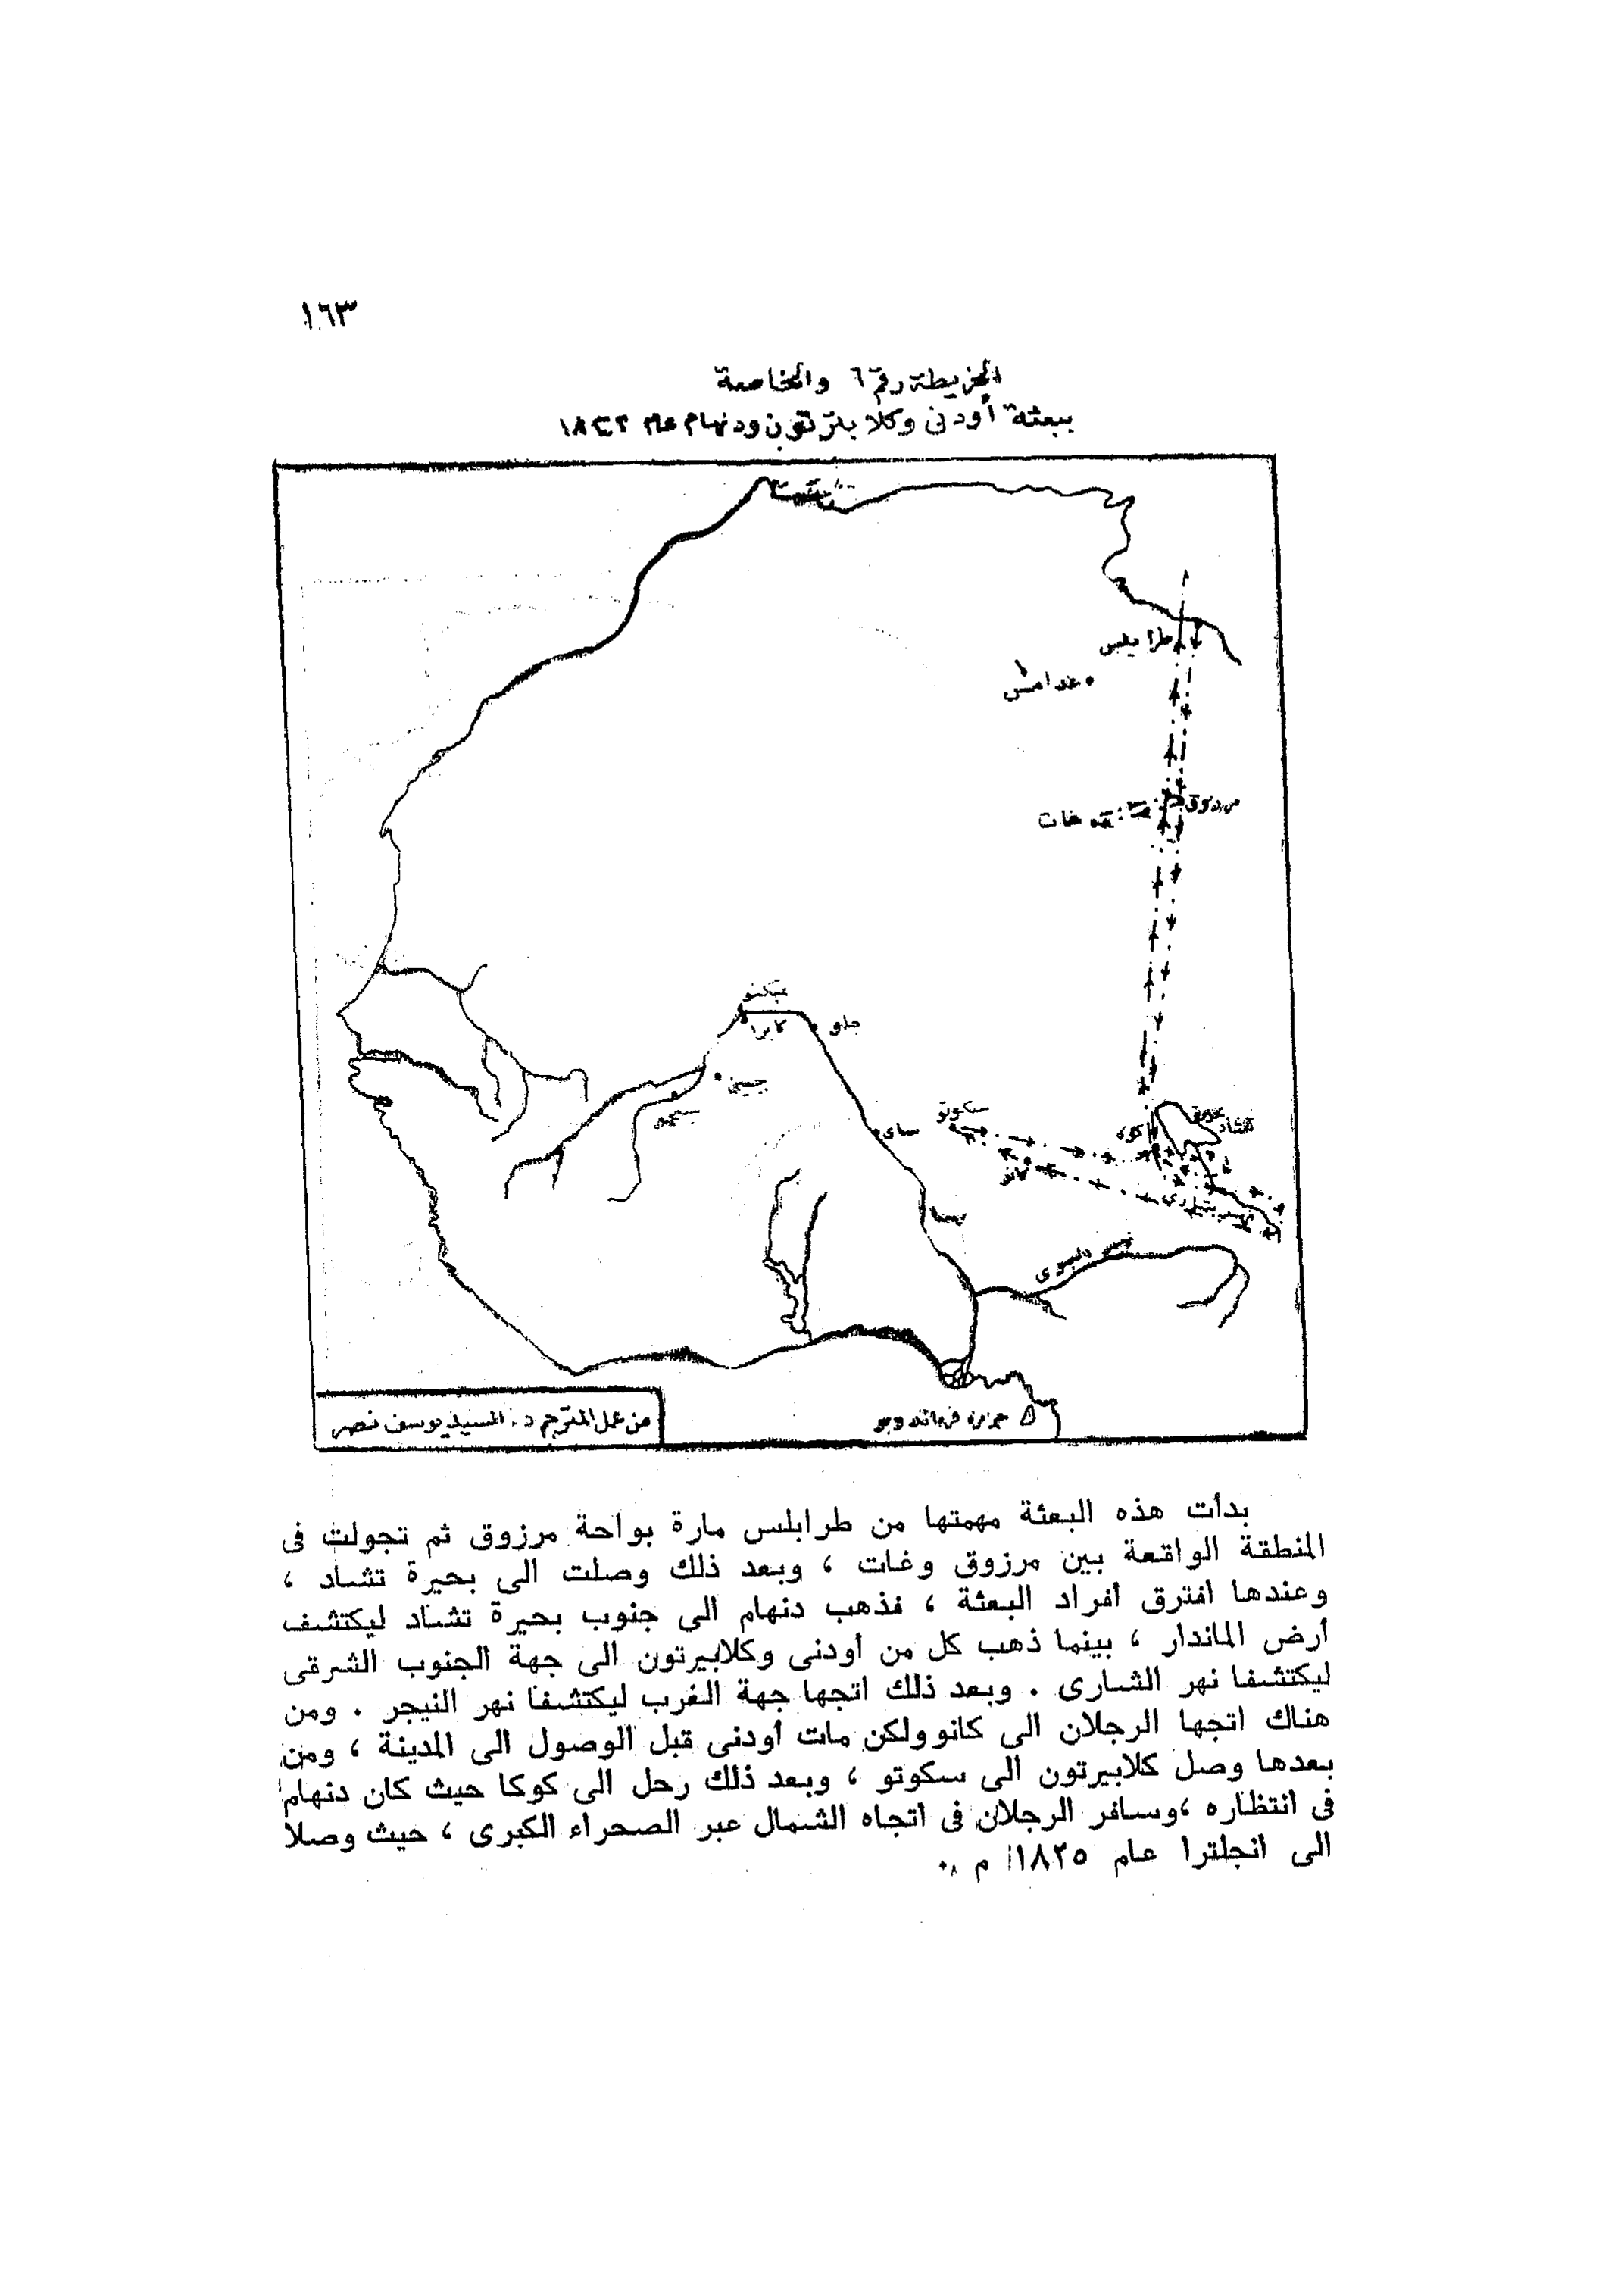 ١٦٣
الخريطة رقم ٦ والخاصة
ببعثة أودنى وكلابرتون ودنهام عام
طرابلس
غدامس
مرزوق
غات
تمبكتو
كابرا
جاو
جينى
سيجو
سكوتو
ساى
كوكا
بحيرة
تشاد
كانو
نهر البنوى
جزيرة فرناندوبو
من عمل المترجم د. السيد يوسف نصر
بدأت هذه البعثة مهمتها من طرابلس مارة بواحة مرزوق ثم تجولت فى
المنطقة الواقعة بين مرزوق وغات ، وبعد ذلك وصلت الى بحيرة تشاد ،
وعندها افترق أفراد البعثة ، فذهب دنهام الى جنوب بحيرة تشاد ليكتشف
أرض الماندار ، بينما ذهب كل من أودنى وكلابيرتون الى جهة الجنوب الشرقى
ليكتشفا نهر الشارى . وبعد ذلك اتجها جهة الغرب ليكتشفا نهر النيجر . ومن
هناك اتجها الرجلان الى كانو ولكن مات أودنى قبل الوصول الى المدينة ، ومن
بعدها وصل كلابيرتون الى سكوتو ، وبعد ذلك رحل الى كوكا حيث كان دنهام
فى انتظاره ، وسافر الرجلان فى اتجاه الشمال عبر الصحراء الكبرى ، حيث وصلا
الى انجلترا عام ١٨٢٥ م .